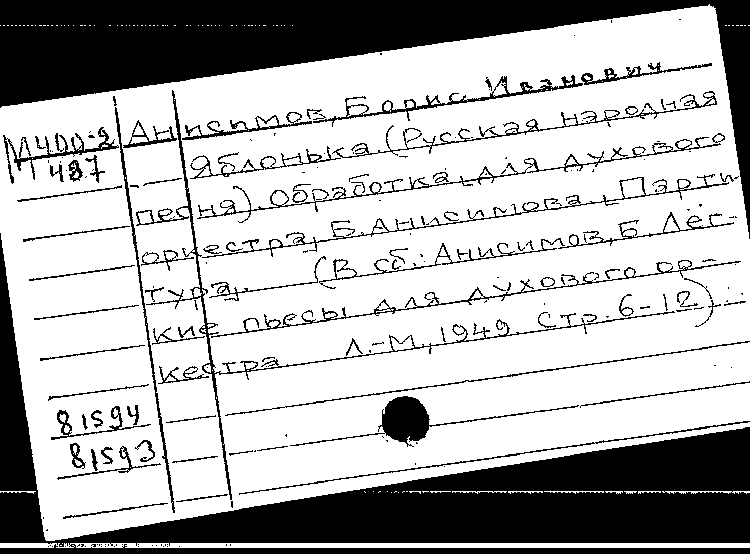 М400-2 Анисимов, Борис Иванович
М 487 Яблонька. (Русская народная
песня). Обработка [для духового
оркестра] Б. Анисимова. [Парти-
тура]. (В сб.: Анисимов, Б. Лёг-
кие пьесы для духового ор-
кестра Л.-М., 1949. Стр. 6-12).
81594
81593